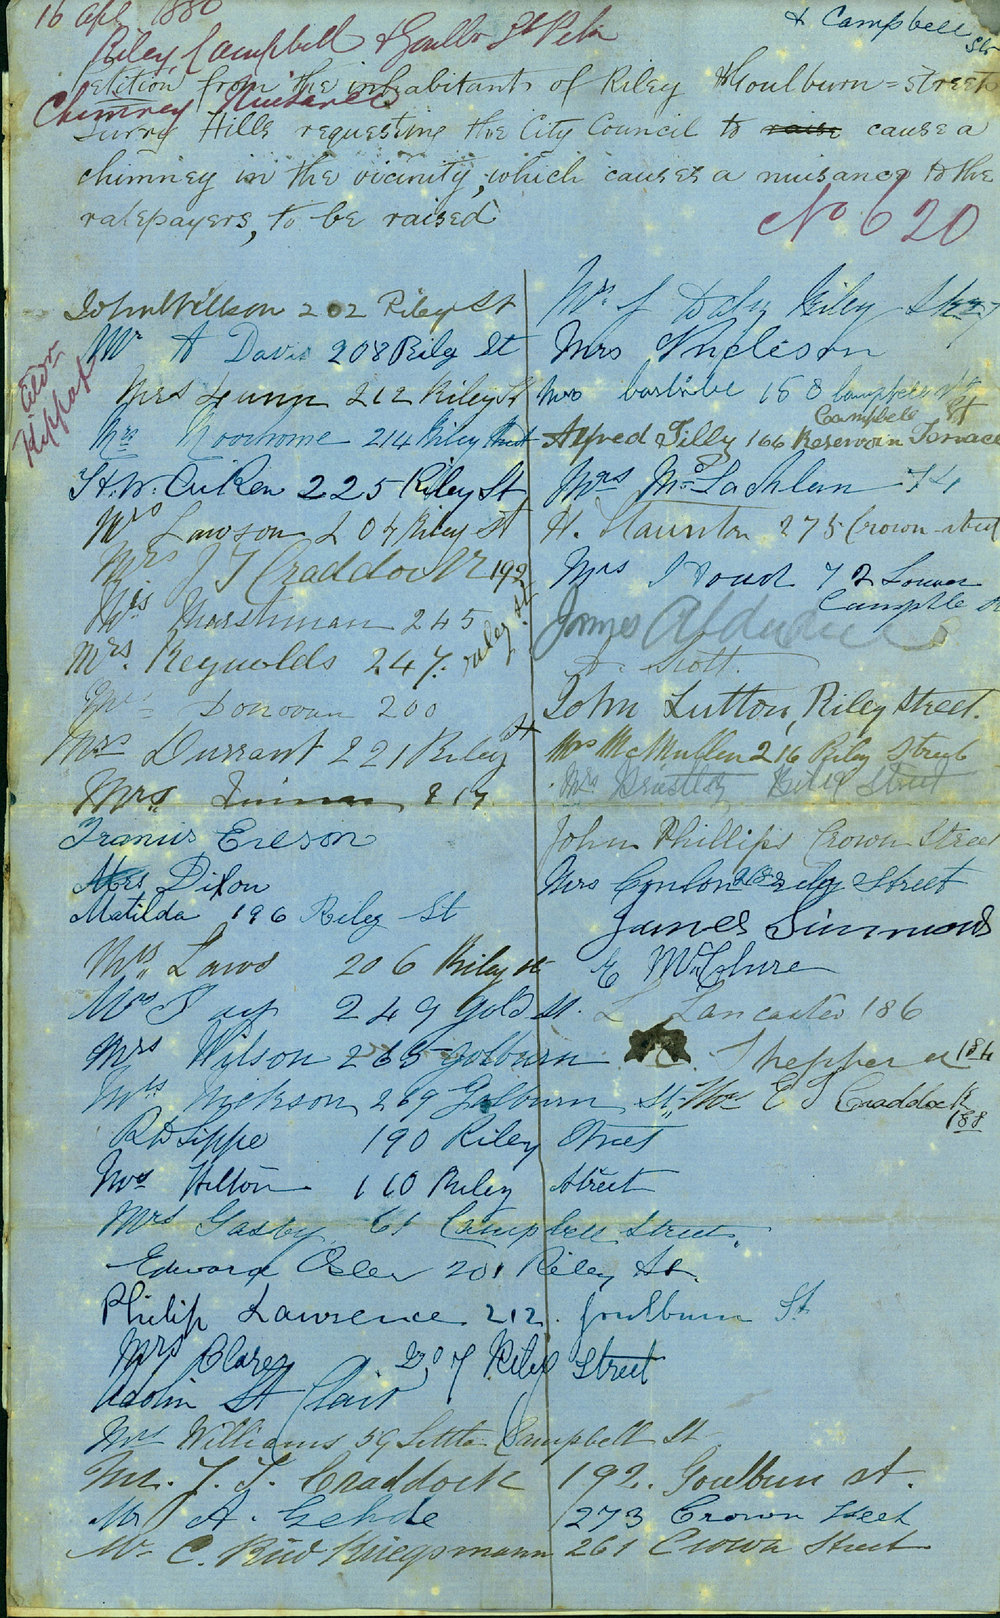 16 apl 1880
& Campbell Str
Riley, Campbell & Goulbn St Petn
Petition from the inhabitants of Riley & Goulburn = streets
Chimney Nuisance
Surry Hills requesting the City Council to raise cause a
chimney in the vicinity, which causes a nuisance to the
ratepayers, to be raised
No 620
John Willson 202 Riley St
Mr A Davis 208 Riley St
Mrs Gunn 212 Riley St
Mrs Moorhome 214 Riley Street
H. W. Aiken 225 Riley St
Mrs Lawson 204 Riley St
Mrs J T Craddock 192
Mrs Marshman 245
riley st
Mrs. Reynolds 247.
Mrs Donovan 200
Mrs Durrant 221 Riley St
Mrs 217
Francis Eelson
Mrs Dixon
Matilda 196 Riley St
Mrs. Laws 206 Riley st
Mrs 249 Gold St.
Mrs Wilson 265 Golburn
Mrs Nickson 269 Golburn St
R D Sippe 190 Riley Street
Mrs Hilton 110 Riley Street
Mrs Gasby 61 Campbell Street.
Edward Osler 201 Riley St.
Philip Lawrence 212. Goulburn St
Mrs Clarey 207 Riley Street
St Clair
Mrs Williams 59 Little Campbell St
Mr. J. T. Craddock 192. Goulburn st.
Mr A. Gehde 273 Crown Street
Mr C. Kriegsmann 261 Crown Street
Mrs J Daly Riley Street
Mrs Ingleson
Mrs 158 Campbell St
Campbell St
Alfred Tilly 166 Reservoir Terrace
Mrs McLachlan 74
H. Staunton 275 Crown street
Mrs 72 Lower
Campble St
James
Scott.
John Lutton, Riley Street.
Mrs McMullen 216 Riley Street
Mrs Riley Street
John Phillips Crown Street
Mrs Conlon 218 riley Street
James Simmonds
E McClure
L Lancaster 186
184
Mrs E T Craddock
188